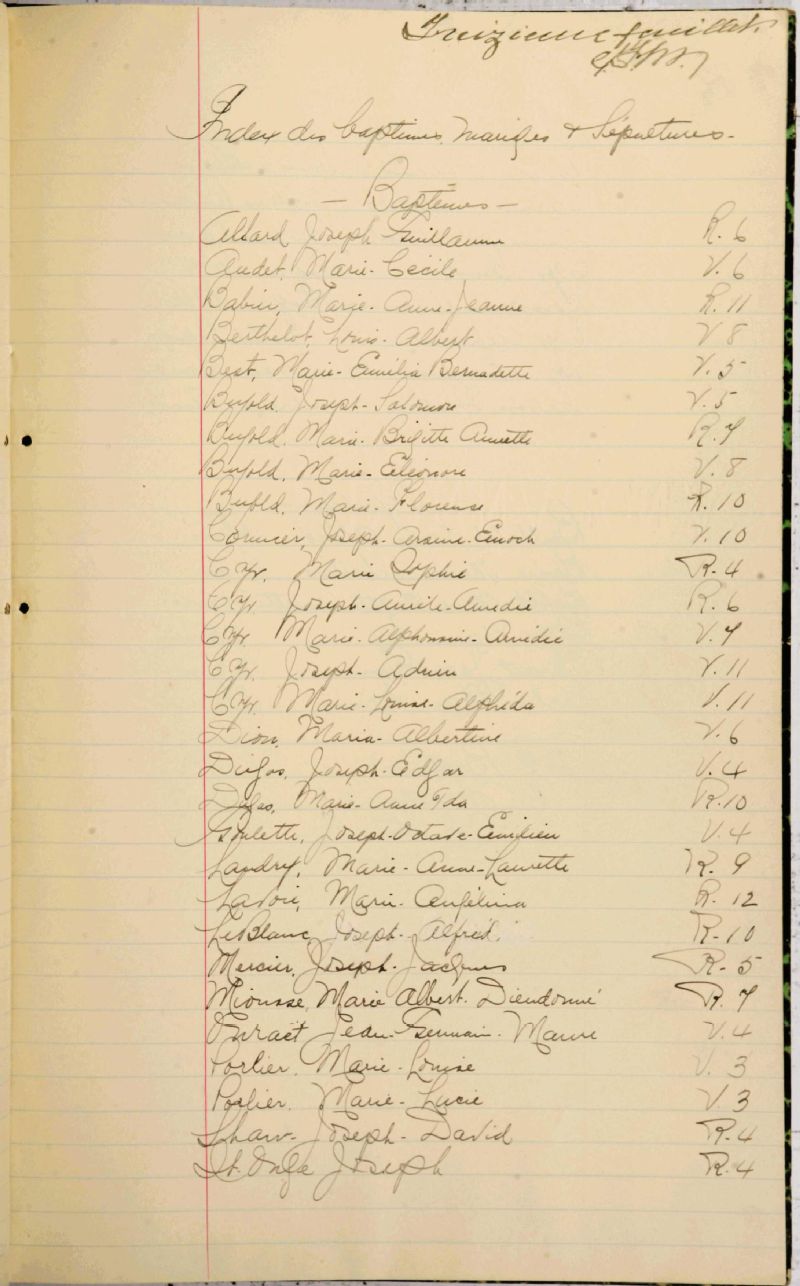 Treizième feuillet
Index des baptêmes, mariages & Sépultures-
- Baptêmes -
Allard, Joseph Guillaume R. 6
Audet, Marie-Cécile V. 6
Babin, Marie-Anne-Jeanne R. 11
Berthelot, Louis-Albert V 8
Best, Marie-Emilia Bernadette V. 5
Bujold, Joseph-Salomon V. 5
Bujold, Marie-Brigitte Annette R. 7
Bujold, Marie-Eléonore V. 8
Bujold, Marie-Florence R. 10
Cormier, Joseph-Arsène-Enoch V. 10
Cyr, Marie Sophie R. 4
Cyr, Joseph-Aurèle-Amédée R. 6
Cyr, Marie-Alphonsine-Amédée V. 7
Cyr, Joseph-Adrien V. 11
Cyr, Marie-Louise-Alphéda V. 11
Dion, Maria-Albertine V. 6
Dugas, Joseph-Edgar V. 4
Dugas, Marie-Anne Ida R. 10
Goulette, Joseph-Octave-Emilien V. 4
Landry, Marie-Anne-Laurette R. 9
Lavoie, Marie-Angélina R. 12
LeBlanc, Joseph-Alfred. R. 10
Mercier, Joseph-Jacques R. 5
Miousse, Marie Albert-Dieudonné R. 7
Jean-Germain- V. 4
Porlier, Marie-Louise V. 3
Porlier, Marie-Lucie V 3
Shaw-Joseph-David R. 4
St. Onge Joseph R. 4